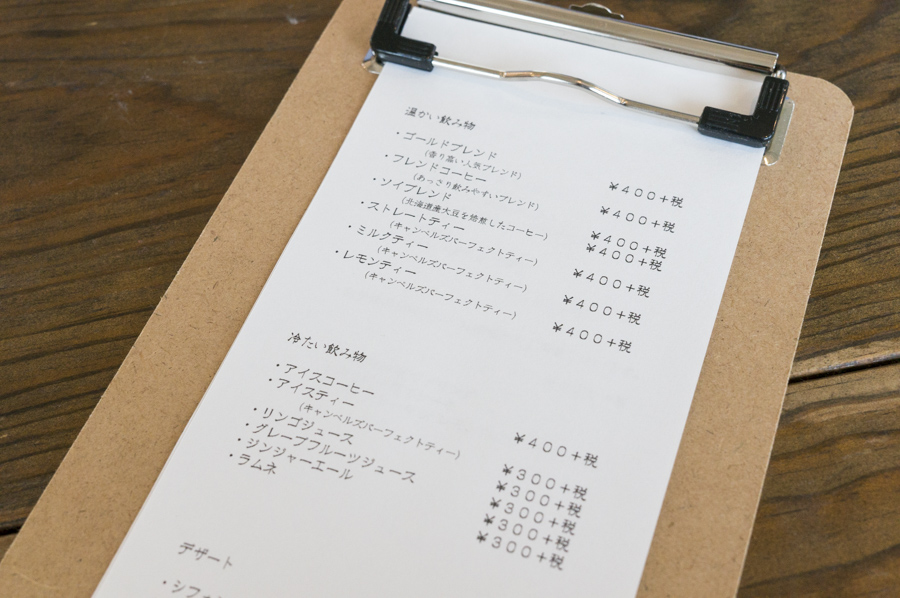 温かい飲み物
・ゴールドブレンド ¥400+税
(香り高い人気ブレンド)
・ブレンドコーヒー ¥400+税
(あっさり飲みやすいブレンド)
・ソイブレンド ¥400+税
(北海道産大豆を焙煎したコーヒー) ¥400+税
・ストレートティー
(キャンベルズパーフェクトティー) ¥400+税
・ミルクティー
(キャンベルズパーフェクトティー) ¥400+税
・レモンティー
(キャンベルズパーフェクトティー) ¥400+税
冷たい飲み物
・アイスコーヒー ¥400+税
・アイスティー
(キャンベルズパーフェクトティー) ¥300+税
・リンゴジュース ¥300+税
・グレープフルーツジュース ¥300+税
・ジンジャーエール ¥300+税
・ラムネ ¥300+税
デザート